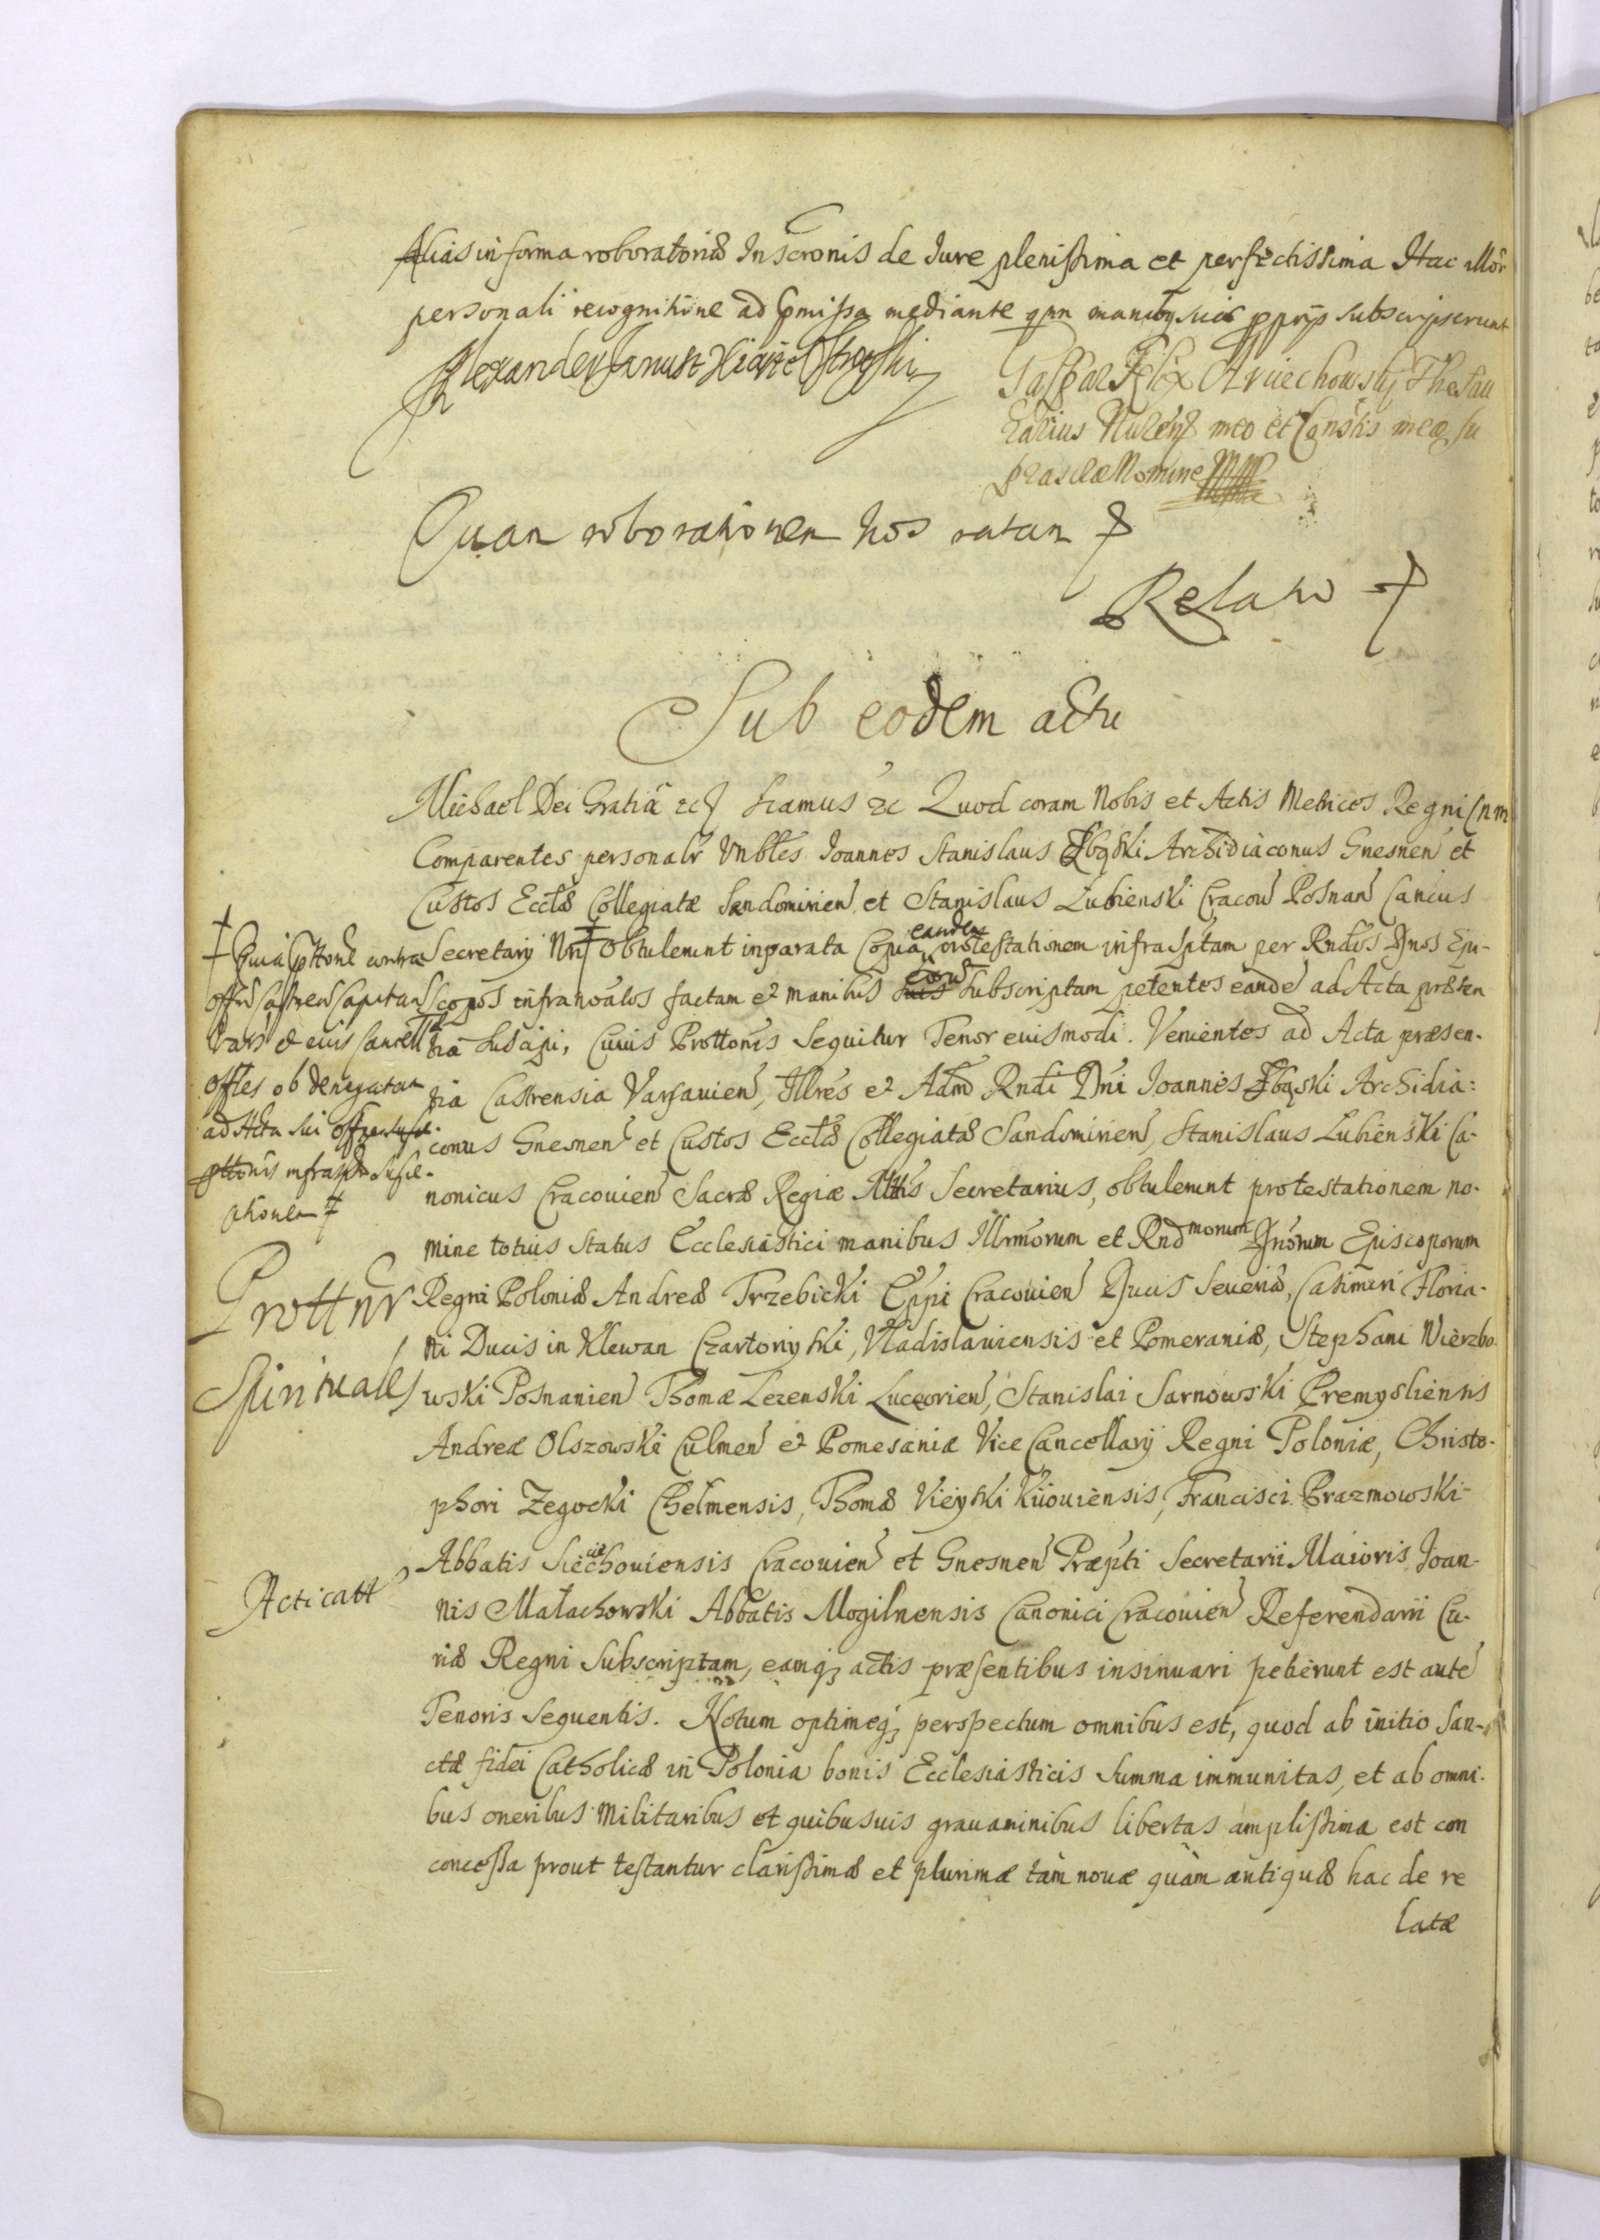 Alias in forma roboratoriæ Inscronis de Jure plenissima et perfectissima Hac illor
personali recognitione ad pmissa mediante qnn manibq suis pprijs subscripserunt
Alexander Janusz Xiąże Ostrogski
Gasspar Felix
Thesau
rarius meo et Consortis meæ su
prascæ Nomine
Quan roborationem nos ratan
Relatio
Sub eodem actu
Michael Dei Gratiâ etc Quod coram Nobis et Actis Metrices Regni
Comparentes personalr Vnbles Joannes Stanislaus Zbąski Archidiaconus Gnesnen et
Custos Eccłæ Collegiatæ Sendomirien et Stanislaus Lubienski Cracou Posnan Cancus
Secretarij Nri obtulerunt inparata Copia eandem protestationem infrasptam per Rndos Dnos Epi-
scopos infranoatos factam et manibus suis eorū subscriptam petentes eande ad Acta præsen
tia susàpi, Cuius Prottonis Sequitur Tenor euismodi. Venientes ad Acta præsen-
tia Castrensia Varsauien, Illres et Adm Rndi Dni Joannes Zbąski Archidia:
conus Gnesnen et Custos Eccłæ Collegiatæ Sandomirien, Stanislaus Lubienski Ca-
nonicus Cracouien Sacræ Regiæ Mttis Secretarius, obtulerunt protestationem no-
mine totius Status Ecclesiastici manibus Illrmorum et Rndmorum Dnorum Episcoporum
Regni Poloniæ Andreæ Trzebicki Eppi Cracouien Ducis Seueriæ, Casimiri Floria-
ni Ducis in Klewan Czartoriyski, Vladislauiensis et Pomeraniæ, Stephani Wierzbo-
wski Posnanien Thomæ Lezenski Luceorien, Stanislai Sarnowski Premysliensis
Andreæ Olszowski Culmen et Pomesaniæ Vice Cancellarij Regni Poloniæ, Christo-
phori Zegocki Chelmensis, Thomæ Vieyski Kiiouiensis, Francisci Prazmowski
Abbatis Sieciechouiensis Cracouien et Gnesnen Præpti Secretarii Maioris Joan-
nis Małachowski Abbatis Mogilnensis Canonici Cracouien Referendarii Cu-
riæ Regni Subscriptam, eamq actis præsentibus insinuari petierunt est aute
Tenoris sequentis. Notum optimeq perspectum omnibus est, quod ab initio San-
ctæ fidei Catholicæ in Polonia bonis Ecclesiasticis summa immunitas, et ab omni-
bus oneribus Militaribus et quibusuis grauaminibus libertas amplissima est con
concessa prout testantur clarissimæ et plurimæ tàm nouæ quàm antiquæ hac de re
latæ
Quia pttone contra
offm Castren Capitan
Vars et eius Cancell
offles ob denegatan
ad Acta sui
pttonis infrasptæ suscē-
ptionem
Prottnr
Spirituales
Acticatt